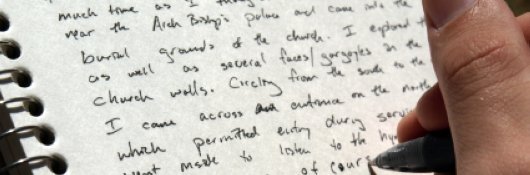 much time as I
near the Arch Bishop's palace and came into the
burial grounds of the church. I explored
as well as several faces/gargoyles in the
church walls. Circling from the south to the
I came across an entrance on the north
which permitted entry during
made to listen to the
of cours